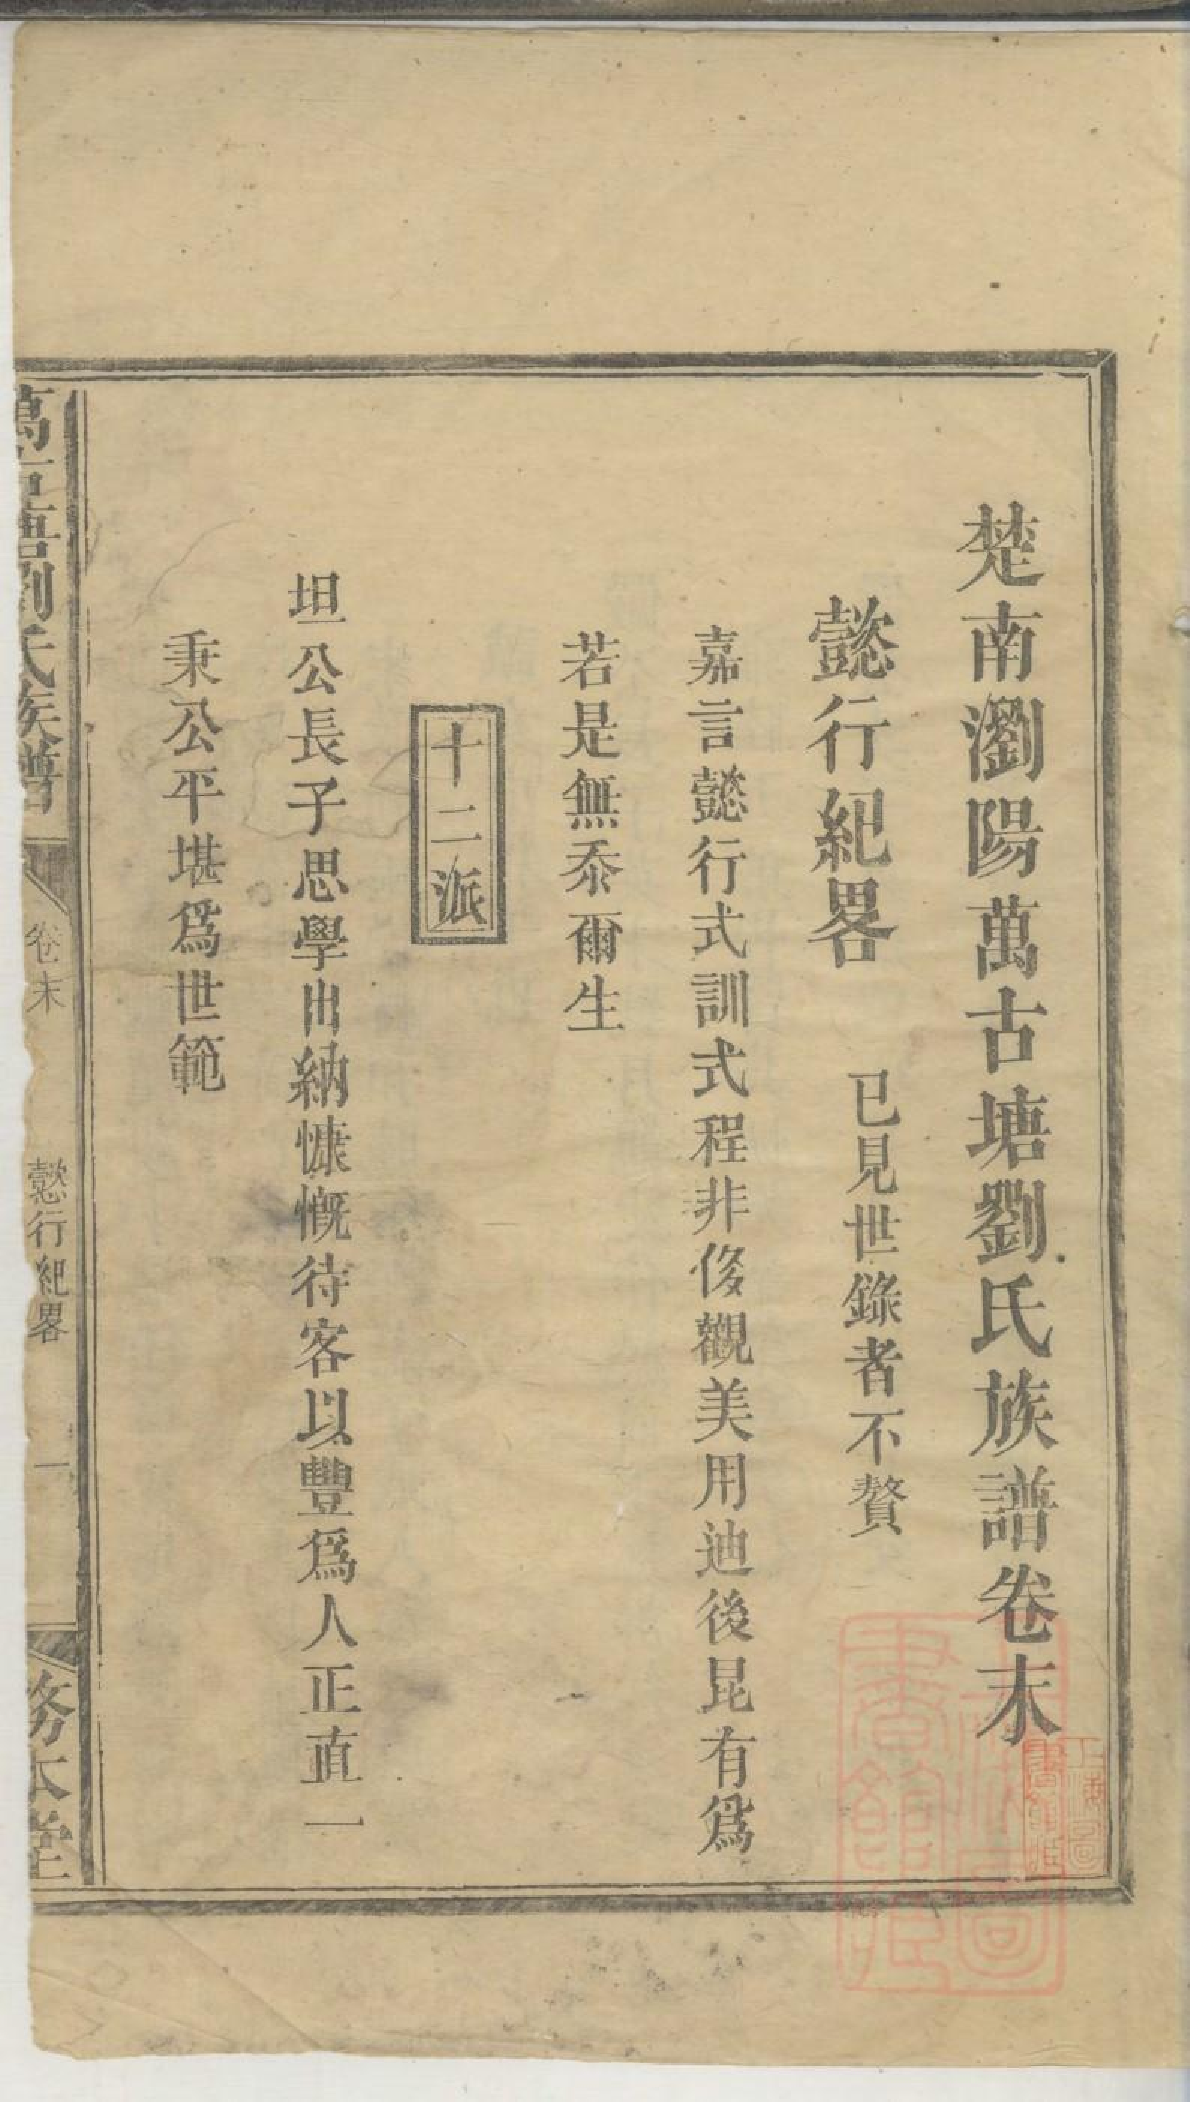 楚南瀏陽萬古塘劉氏族譜卷末
懿行紀畧 已見世錄者不贅
嘉言懿行式訓式程非侈觀美用迪後昆有爲
若是無忝爾生
十二派
坦公長子思學出納慷慨待客以豐爲人正直一
秉公平堪爲世範
萬古塘劉氏族譜 卷末 懿行紀畧 一 務本堂
上海圖書館藏
上海圖書館藏